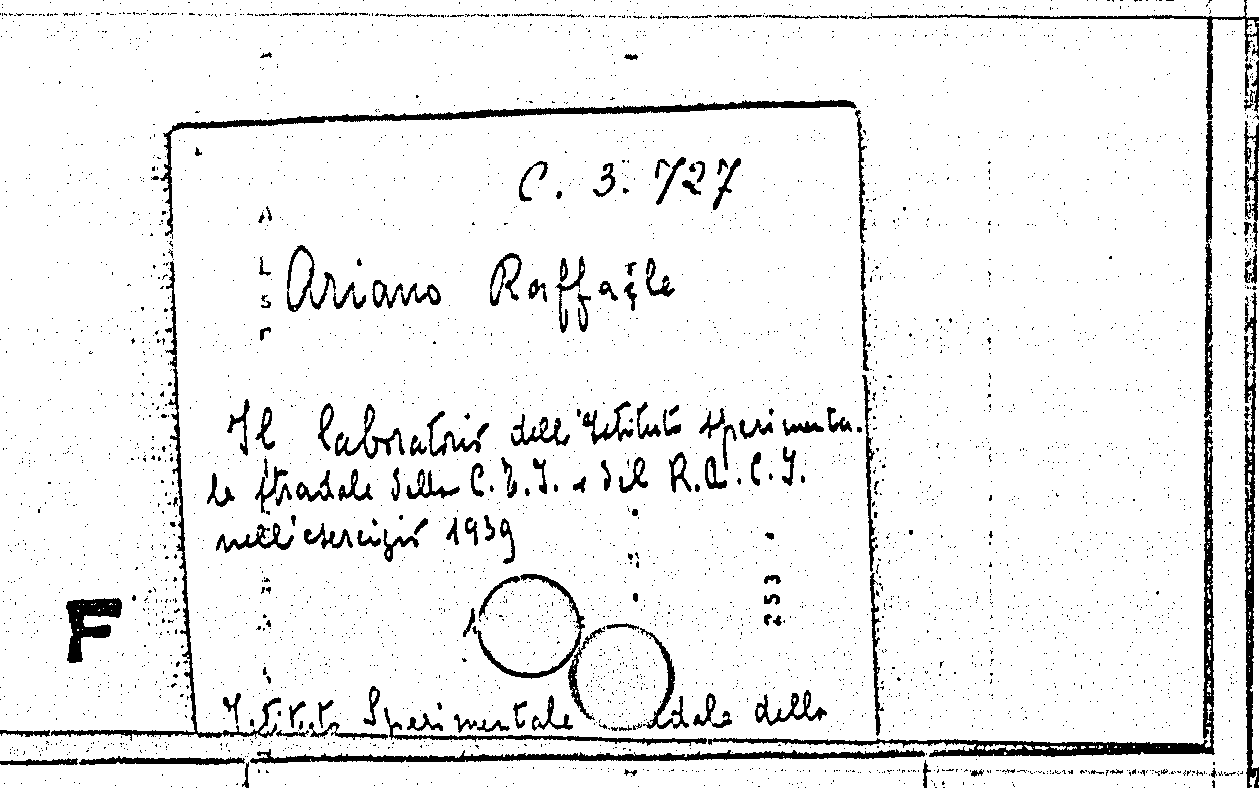 C. 3. 727
Ariano Raffaele
Il laboratorio dell'Istituto sperimenta-
le stradale della C.T.I. e del R.A.C.I.
nell'esercizio 1939
F
253
Istituto Sperimentale dale della